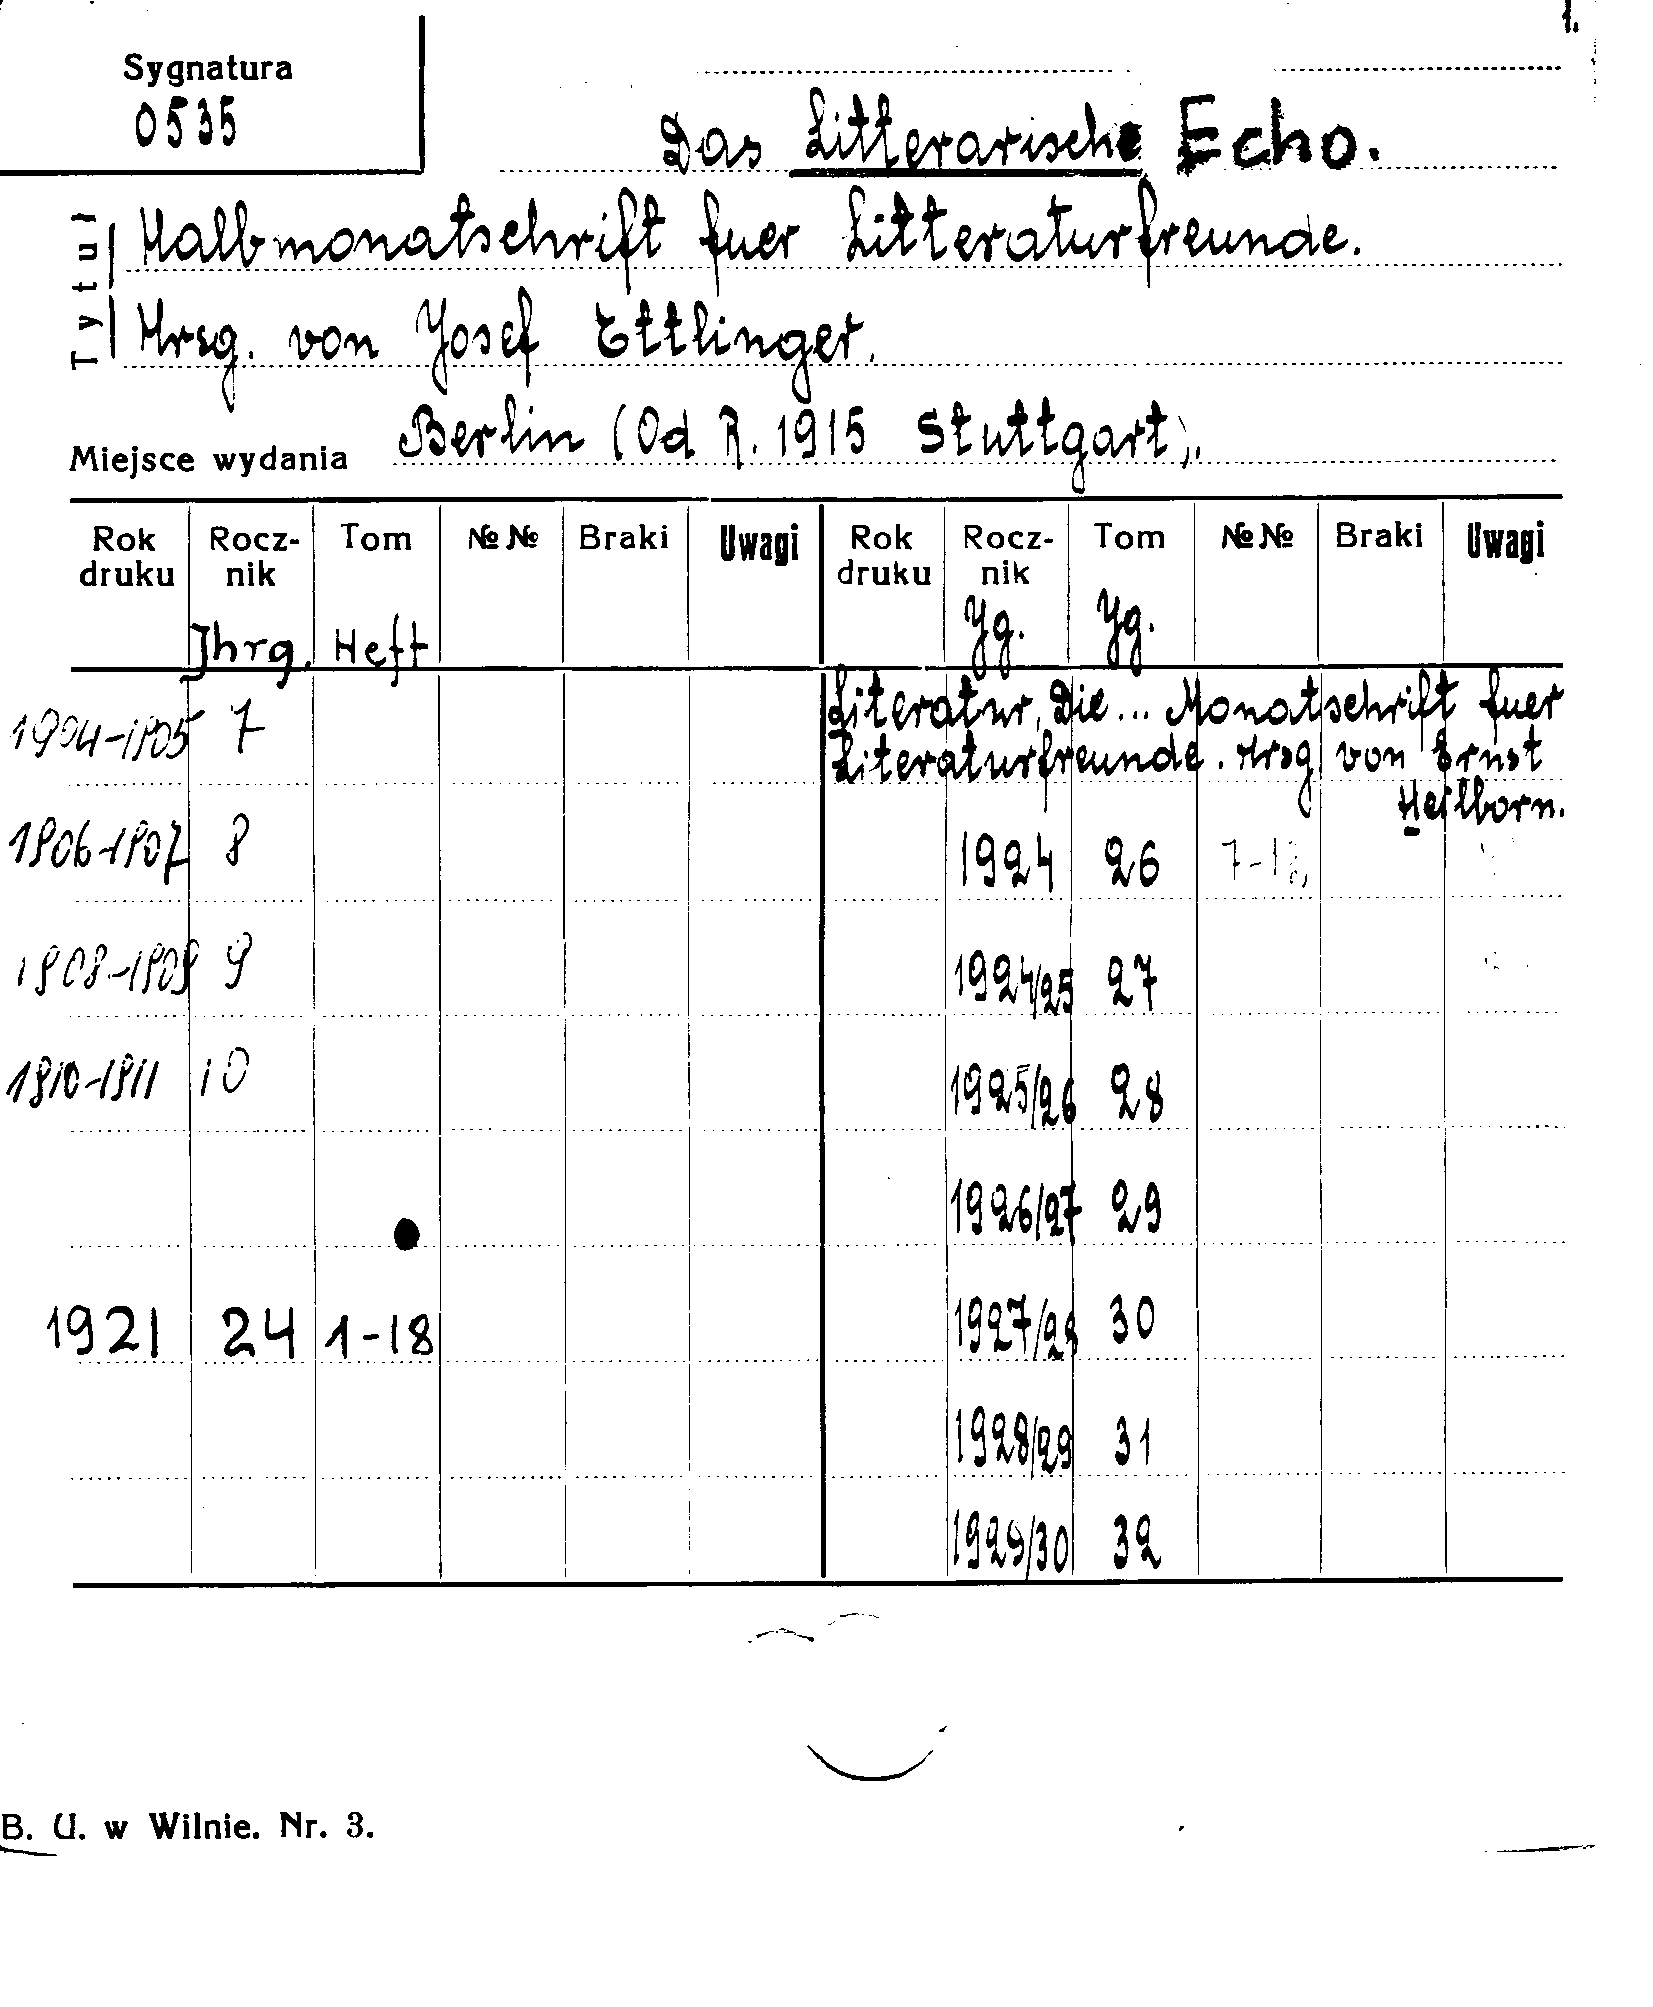 1.
Sygnatura
0535
Das Litterarische Echo.
Tytuł
Halbmonatschrift fuer Litteraturfreunde.
Hrsg. von Josef Ettlinger.
Miejsce wydania Berlin (Od R. 1915 Stuttgart).
Rok druku Rocznik Tom №№ Braki Uwagi Rok druku Rocznik Tom №№ Braki Uwagi
Jhrg. Heft Jg. Jg.
Literatur, Die... Monatschrift fuer
1904-1905 7 Literaturfreunde. Hrsg von Ernst
Heilborn.
1906-1907 8 1924 26
1908-1909 9 1924/25 27
1910-1911 10 1925/26 28
1926/27 29
1921 24 1-18 1927/28 30
1928/29 31
1929/30 32
B. U. w Wilnie. Nr. 3.